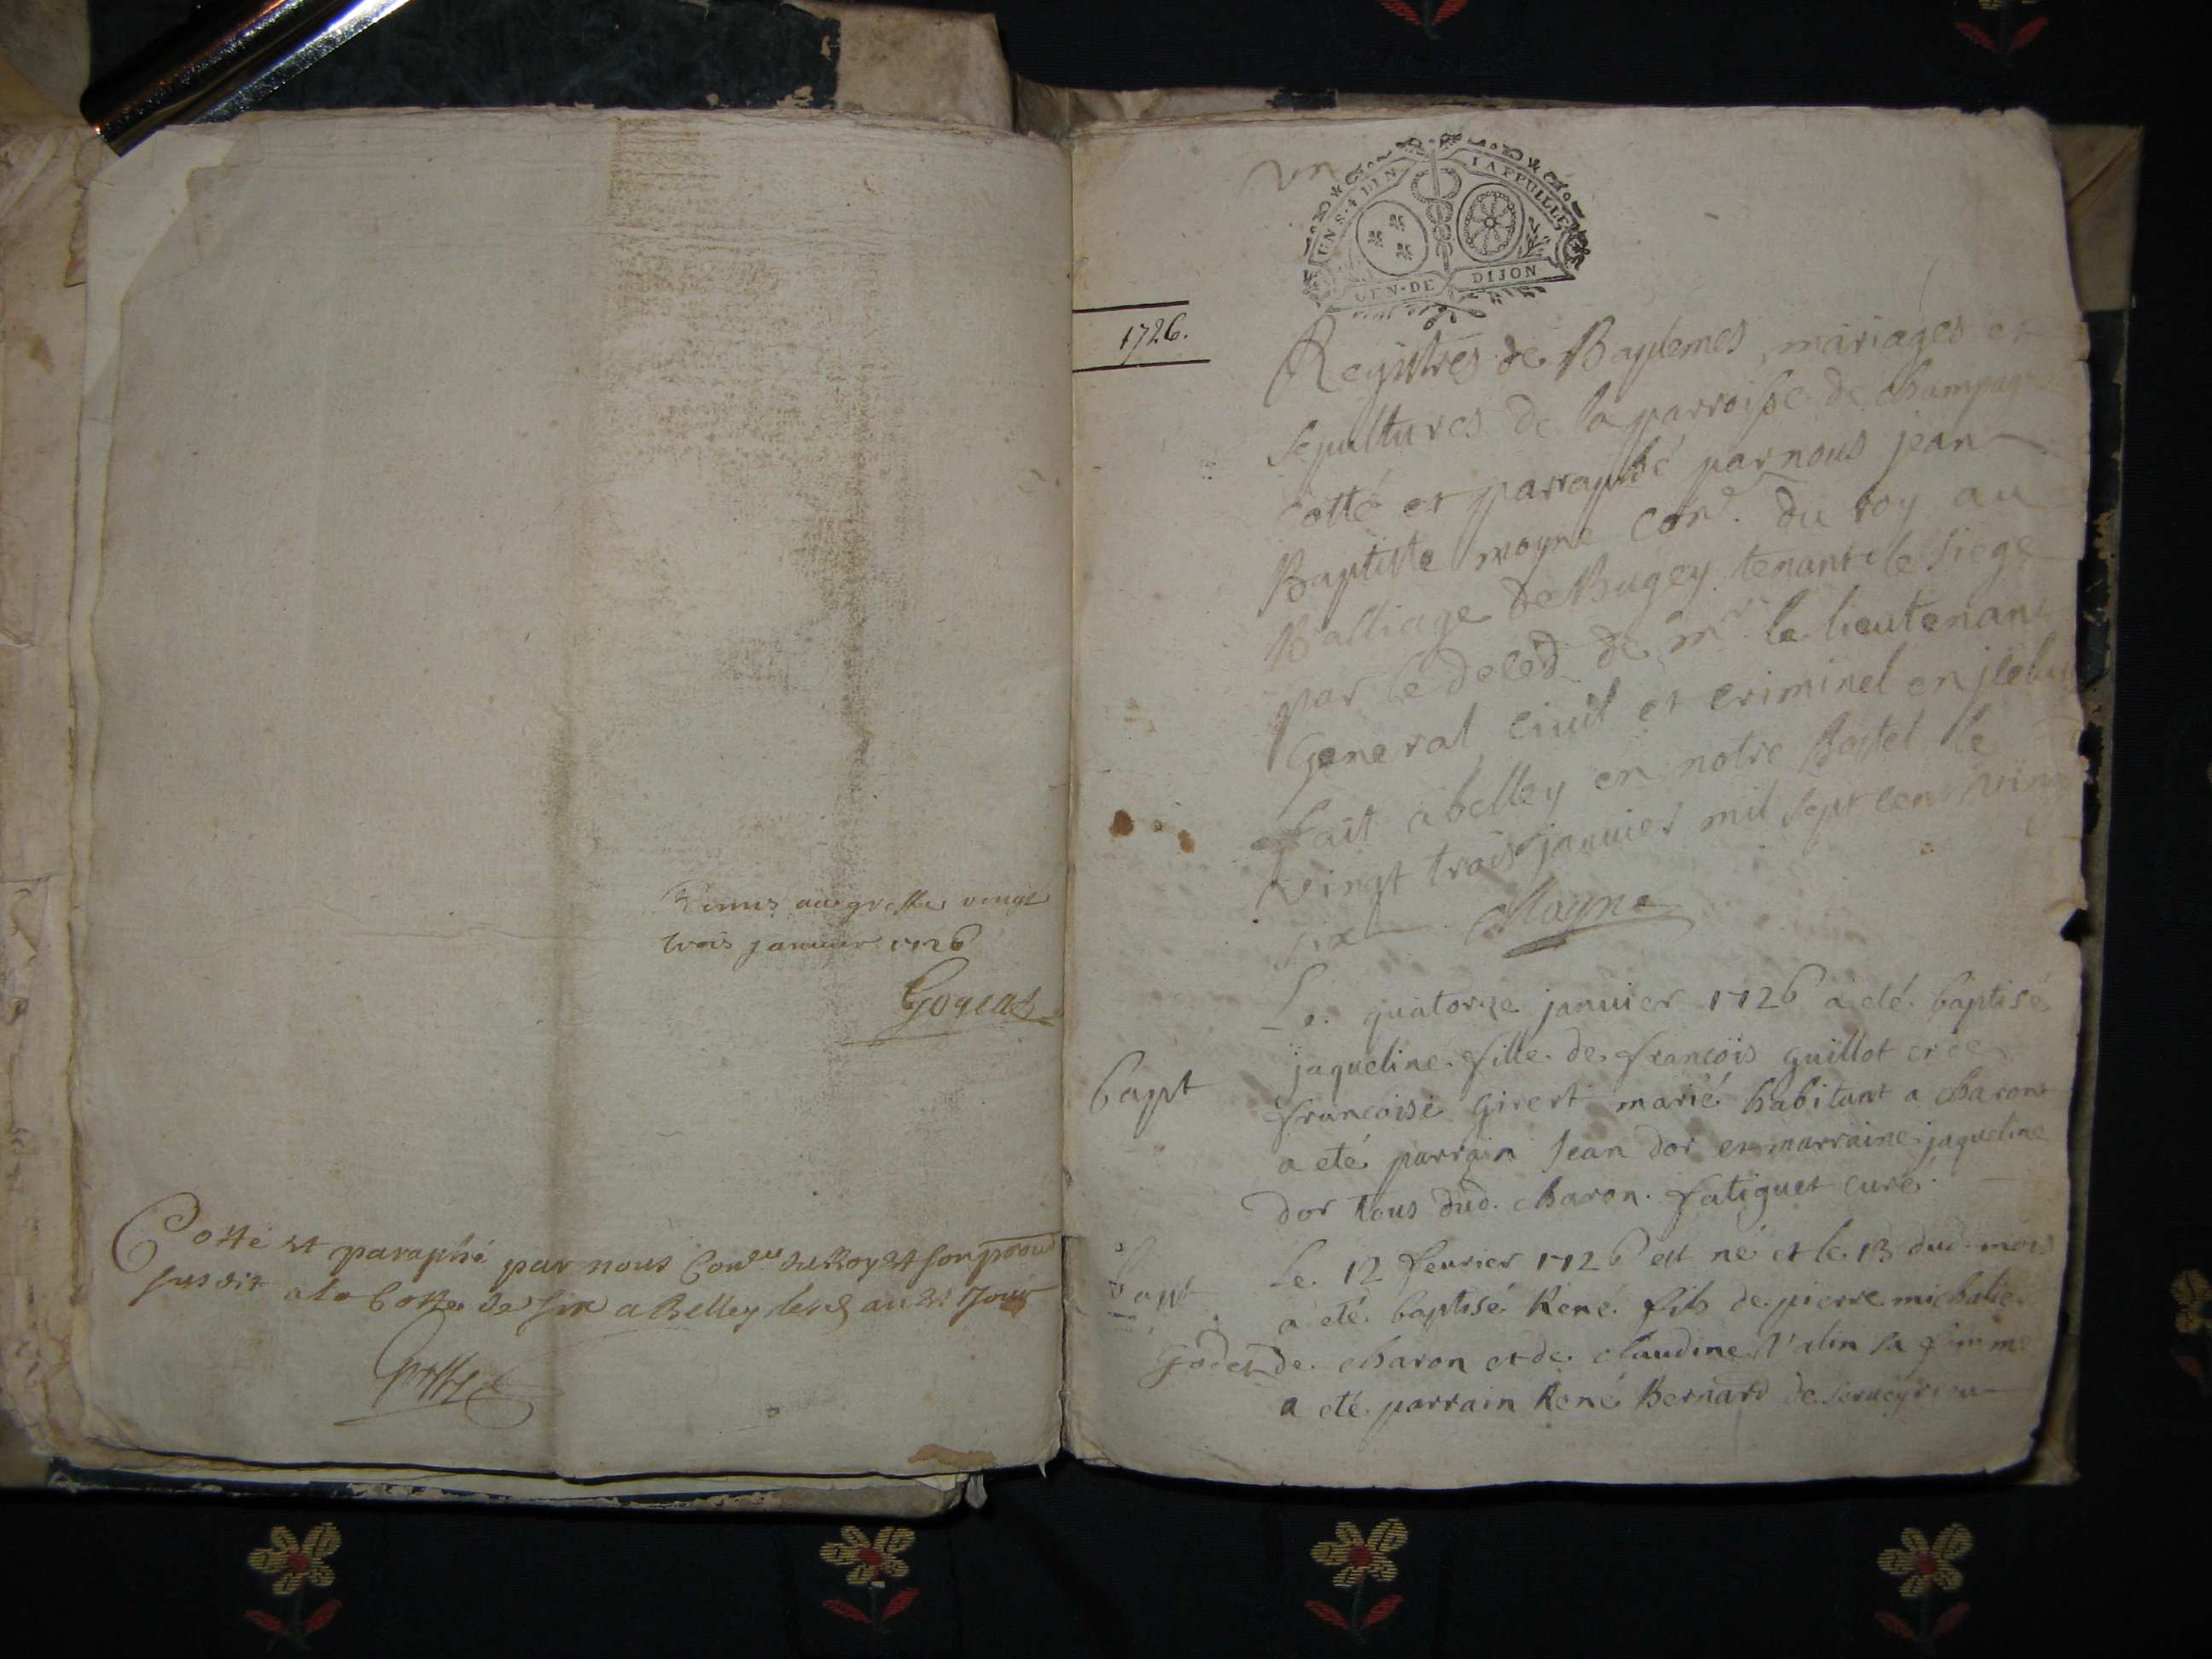 Remis au greffe vingt
trois janvier 1726
Cotté et paraphé par nous Con.er du Roy et
susdit a la Cotte de six a Belley les an et Jour
un
UN S. 4 D. LA FEUILLE
GEN. DE DIJON
1726.
Registres de Baptemes, mariages et
sepultures de la parroisse de champagne
cotté et parraphé par nous jean
Baptiste moyne Con.r du roy au
Balliage de Bugey tenant le siege
par le deced de mr le lieutenant
General civil et criminel en jceluy
fait a belley en notre hostel le
vingt trois janvier mil sept cent vingt
six Moyne
Le quatorze janvier 1726 a eté baptisé
jaqueline fille de françois guillot et de
bapt
françoise Girert marié habitant a charon
a eté parrain Jean dor et marraine jaqueline
dor tous dud. charon. fatiguet curé.
Le 12 fevrier 1726 est né et le 13 dud. mois
bapt
a eté baptisé René fils de pierre michalier
godet de charon et de claudine sa femme
a eté parrain René Bernard de